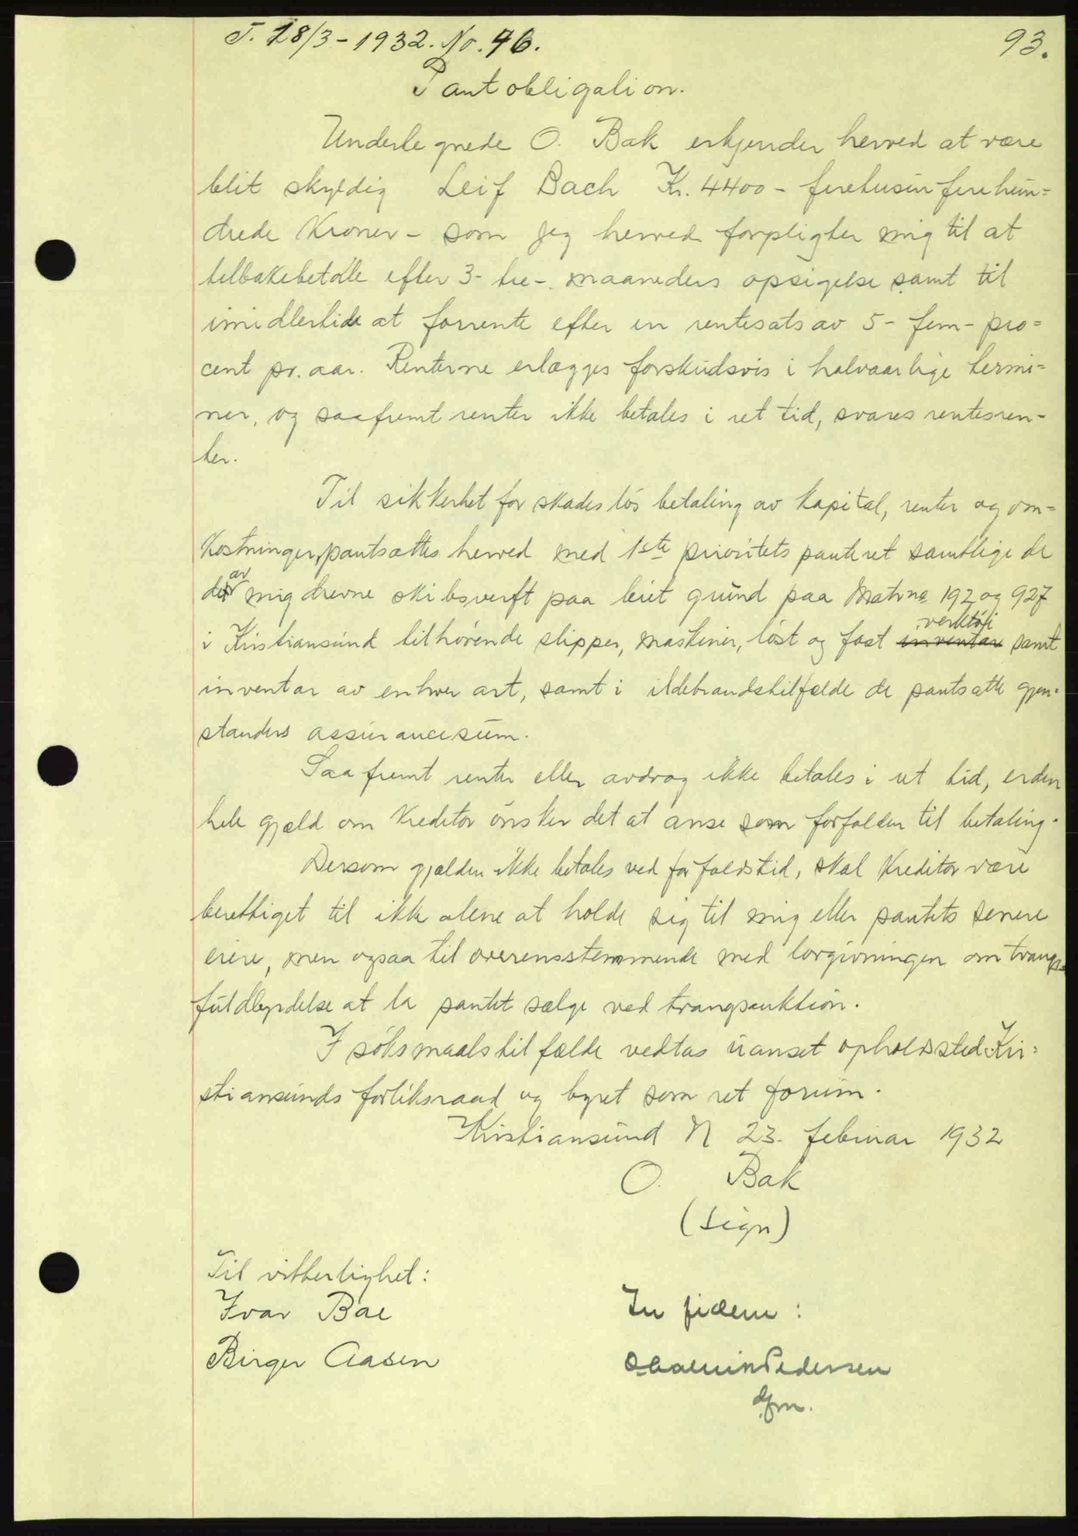 T. 18/3-1932. No. 46. 93.
Pantobligation.
Underlegnede O. Bak erkjender herved at være
blit skyldig Leif Bach Kr. 4400- firetusin firehun-
drede Kroner- som jeg herved forpligter mig til at
tilbakebetale efter 3- tre-. maaneders opsigelse samt til
imidlertide at forrente efter en rentesats av 5- fem- pro-
cent pr. aar. Renterne erlægges forskudsvis i halvaarlige termi-
ner, og saafremt renter ikke betales i ret tid, svares rentesren-
ter.
Til sikkerhet for skadeslös betaling av Kapital, renter og om-
kostninger, pantsættes herved med 1ste prioritets panteret samtlige de
det av mig drevne skibsverft paa leiet grund paa Matr.no 192 og 927
i Kristiansund tilhörende slipper, maskiner, löst og fast inventar verktöi samt
inventar av enhver art, samt i ildebrandstilfælde de pantsatte gjen-
standers assurancesum.
Saafremt renter eller avdrag ikke betales i ret tid, er den
hele gjæld om Kreditor önsker det at anse som forfalden til betaling.
Dersom gjælden ikke betales ved forfaldstid, skal Kreditor være
berettiget til ikke alene at holde sig til mig eller pantets senere
eiere, men ogsaa til overensstemmende med lovgivningen om tvangs-
fuldbyrdelse at la pantet sælge ved tvangsauktion.
I söksmaalstilfælde vedtas uanset opholdssted Kri-
stiansunds forliksraad og byret som ret forum.
Kristiansund N 23. februar 1932
O. Bak
(sign)
Til vitterlighet:
Ivar Bae
Birger Aasen
In fidem:
Pedersen
dfm.